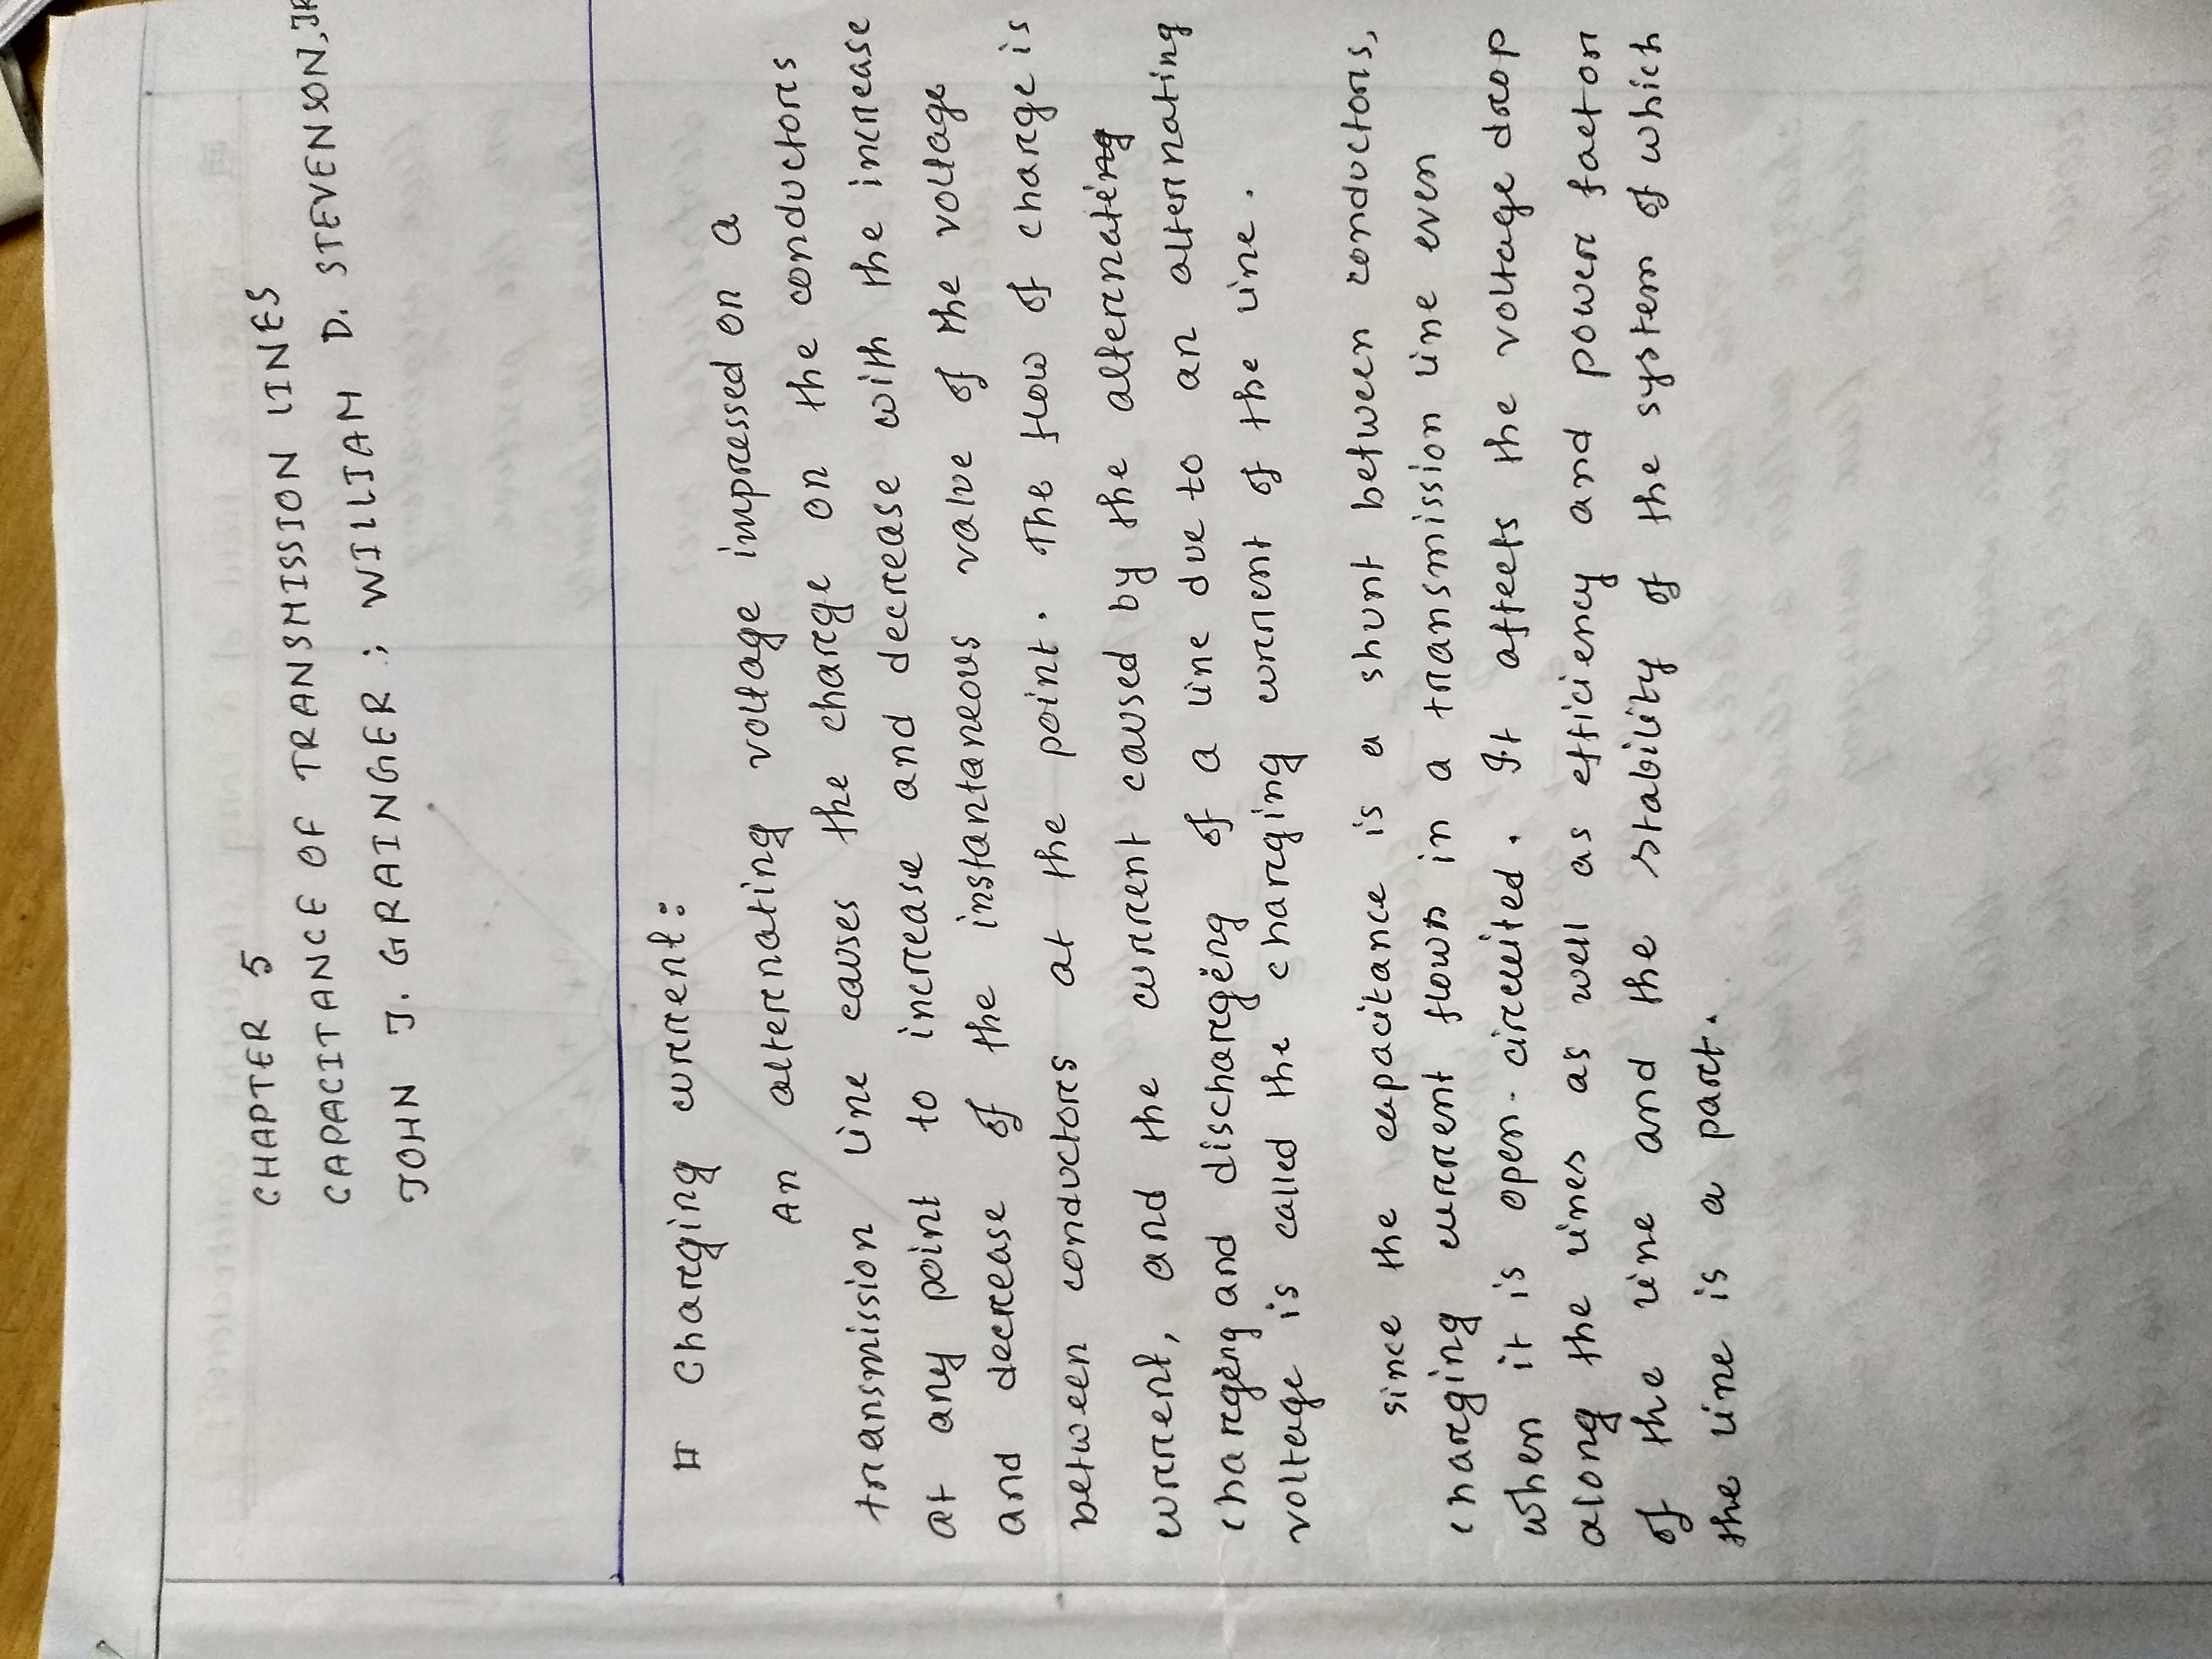 CHAPTER 5
CAPACITANCE OF TRANSMISSION LINES
JOHN J. GRAINGER ; WILLIAM D. STEVENSON, JR
# Charging current:
An alternating voltage impressed on a
transmission line causes the charge on the conductors
at any point to increase and decrease with the increase
and decrease of the instantaneous value of the voltage
between conductors at the point. The flow of charge is
current, and the current caused by the alternating
charging and discharging of a line due to an alternating
voltage is called the charging current of the line.
since the capacitance is a shunt between conductors,
charging current flows in a transmission line even
when it is open-circuited. It affects the voltage drop
along the lines as well as efficiency and power factor
of the line and the stability of the system of which
the line is a part.